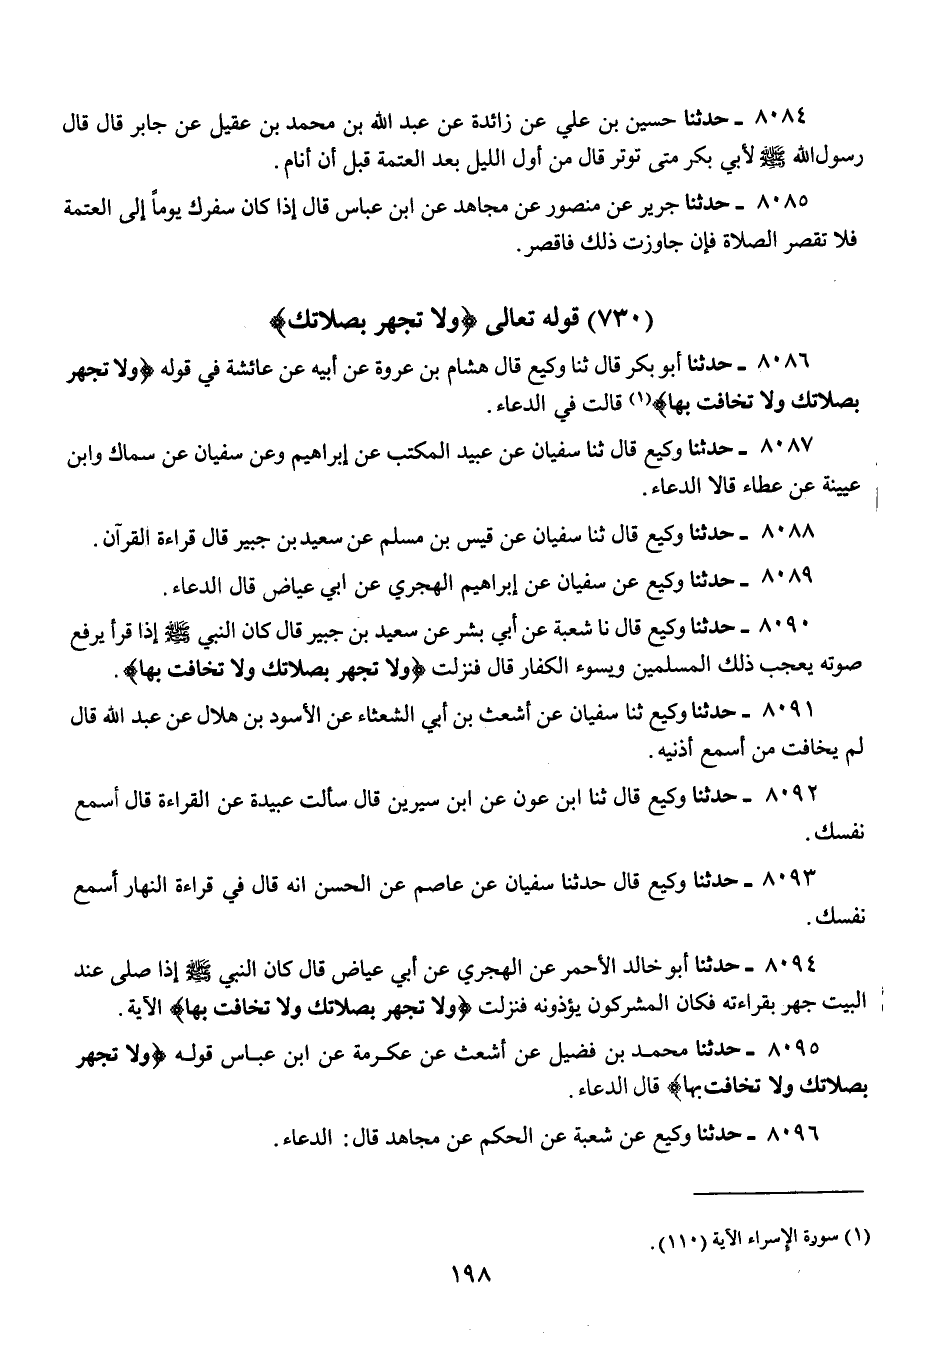 ٨٠٨٤ ـ حدثنا حسين بن علي عن زائدة عن عبد الله بن محمد بن عقيل عن جابر قال قال
رسول الله ﷺ لأبي بكر متى توتر قال من أول الليل بعد العتمة قبل أن أنام .
٨٠٨٥ ـ حدثنا جرير عن منصور عن مجاهد عن ابن عباس قال إذا كان سفرك يوماً إلى العتمة
فلا تقصر الصلاة فإن جاوزت ذلك فاقصر .
(٧٣٠) قوله تعالى ﴿ولا تجهر بصلاتك﴾
٨٠٨٦ ـ حدثنا أبو بكر قال ثنا وكيع قال هشام بن عروة عن أبيه عن عائشة في قوله ﴿ولا تجهر
بصلاتك ولا تخافت بها﴾(١) قالت في الدعاء .
٨٠٨٧ ـ حدثنا وكيع قال ثنا سفيان عن عبيد المكتب عن إبراهيم وعن سفيان عن سماك وابن
عيينة عن عطاء قالا الدعاء .
٨٠٨٨ ـ حدثنا وكيع قال ثنا سفيان عن قيس بن مسلم عن سعيد بن جبير قال قراءة القرآن .
٨٠٨٩ ـ حدثنا وكيع عن سفيان عن إبراهيم الهجري عن ابي عياض قال الدعاء .
٨٠٩٠ ـ حدثنا وكيع قال نا شعبة عن أبي بشر عن سعيد بن جبير قال كان النبي ﷺ إذا قرأ يرفع
صوته يعجب ذلك المسلمين ويسوء الكفار قال فنزلت ﴿ولا تجهر بصلاتك ولا تخافت بها﴾ .
٨٠٩١ ـ حدثنا وكيع ثنا سفيان عن أشعث بن أبي الشعثاء عن الأسود بن هلال عن عبد الله قال
لم يخافت من أسمع أذنيه .
٨٠٩٢ ـ حدثنا وكيع قال ثنا ابن عون عن ابن سيرين قال سألت عبيدة عن القراءة قال أسمع
نفسك .
٨٠٩٣ ـ حدثنا وكيع قال حدثنا سفيان عن عاصم عن الحسن انه قال في قراءة النهار أسمع
نفسك .
٨٠٩٤ ـ حدثنا أبو خالد الأحمر عن الهجري عن أبي عياض قال كان النبي ﷺ إذا صلى عند
البيت جهر بقراءته فكان المشركون يؤذونه فنزلت ﴿ولا تجهر بصلاتك ولا تخافت بها﴾ الآية .
٨٠٩٥ ـ حدثنا محمد بن فضيل عن أشعث عن عكرمة عن ابن عباس قوله ﴿ولا تجهر
بصلاتك ولا تخافت بها﴾ قال الدعاء .
٨٠٩٦ ـ حدثنا وكيع عن شعبة عن الحكم عن مجاهد قال : الدعاء .
(١) سورة الإسراء الآية (١١٠) .
١٩٨